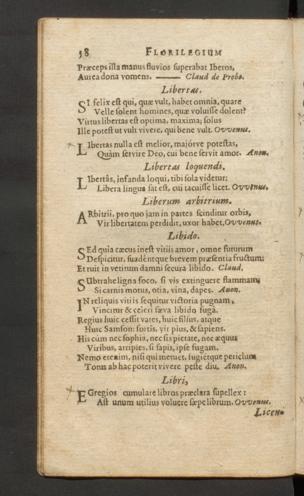 58 FLORILEGIUM
Præceps illa manus fluvios superabat Iberos,
Aurea dona vomens. —— Claud de Probo.
Libertas.
SI felix est qui, quæ vult, habet omnia, quare
Velle solent homines, quæ voluisse dolent?
Virtus libertas est optima, maxima; solus
Ille potest ut vult vivere, qui bene vult. Ovvenus.
LIbertas nulla est melior, majórve potestas,
Quàm servire Deo, cui bene servit amor. Anon.
Libertas loquendi.
LIbertâs, infanda loqui, tibi sola videtur;
Libera lingua sat est, cui tacuisse licet. Ovvenus.
Liberum arbitrium.
ARbitrii, pro quo jam in partes scinditur orbis,
Vir libertatem perdidit, uxor habet. Ovvenus.
Libido.
SEd quia cæcus inest vitiis amor, omne futurum
Despicitur, suadéntque brevem præsentia fructum:
Et ruit in vetitum damni secura libido. Claud.
SUbtrahe ligna foco, si vis extinguere flammam;
Si carnis motus, otia, vina, dapes. Anon.
IN reliquis vitiis sequitur victoria pugnam,
Vincitur & celeri sæva libido fugâ.
Regius huic cessit vates, huic filius, atque
Huic Samson: fortis, vir pius, & sapiens.
His cùm nec sophia, nec sis pietate, nec æquus
Viribus, arripies, si sapis, ipse fugam.
Nemo etenim, nisi qui metuet, fugiétque periclum
Tutus ab hac poterit vivere peste diu. Anon.
Libri,
EGregios cumulare libros præclara supellex:
Ast unum utilius volvere sæpe librum. Ovvenus.
Licen-